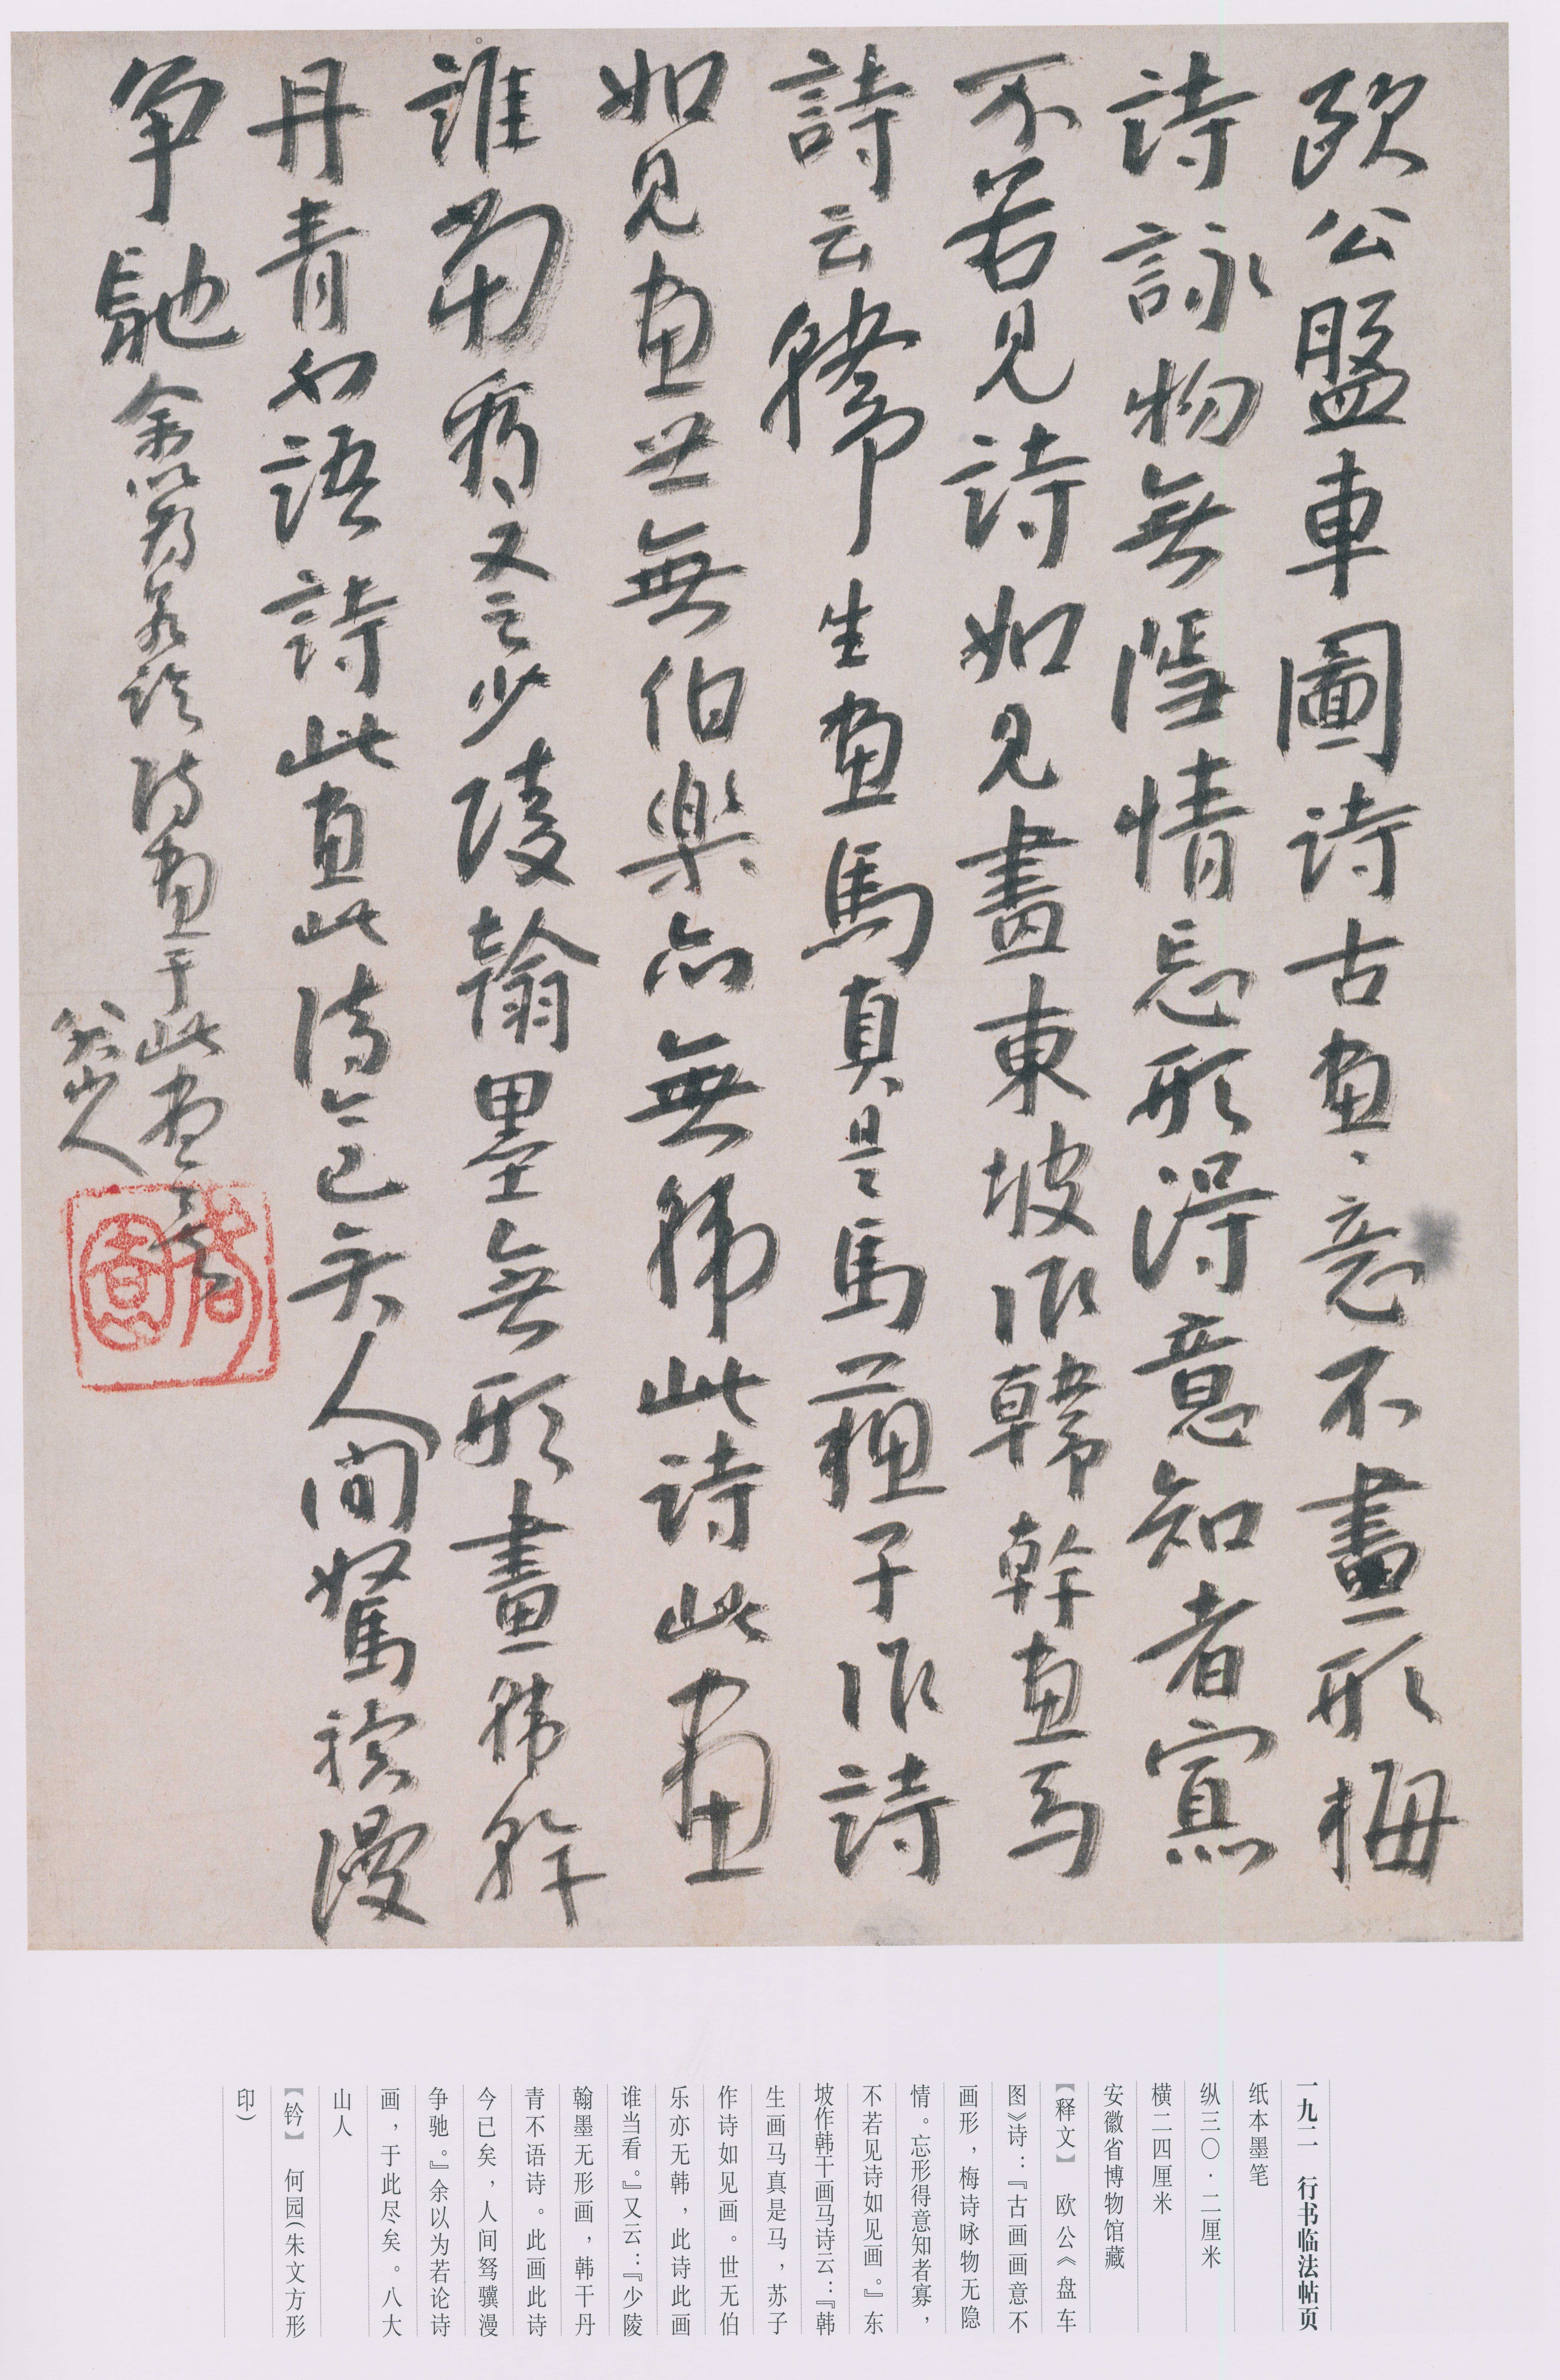 欧公盤車圖诗古画、意不畫形梅
詩詠物無隱情忘形得意知者寡
不若見詩如見畫東坡作韓幹画马
詩云韓生画馬真是馬蘇子作詩
如見画世無伯樂亦無韩此詩此画
誰當看又云少陵翰墨無形畫韩幹
丹青不語詩此画此诗今已矣人间駑驥漫
争馳余以為若论诗画于此尽矣
八大山人
何園
一九二　行书临法帖页
纸本墨笔
纵三〇·二厘米
横二四厘米
安徽省博物馆藏
【释文】　欧公《盘车
图》诗：『古画画意不
画形，梅诗咏物无隐
情。忘形得意知者寡，
不若见诗如见画。』东
坡作韩干画马诗云：『韩
生画马真是马，苏子
作诗如见画。世无伯
乐亦无韩，此诗此画
谁当看。』又云：『少陵
翰墨无形画，韩干丹
青不语诗。此画此诗
今已矣，人间驽骥漫
争驰。』余以为若论诗
画，于此尽矣。八大
山人
【钤】　何园（朱文方形
印）